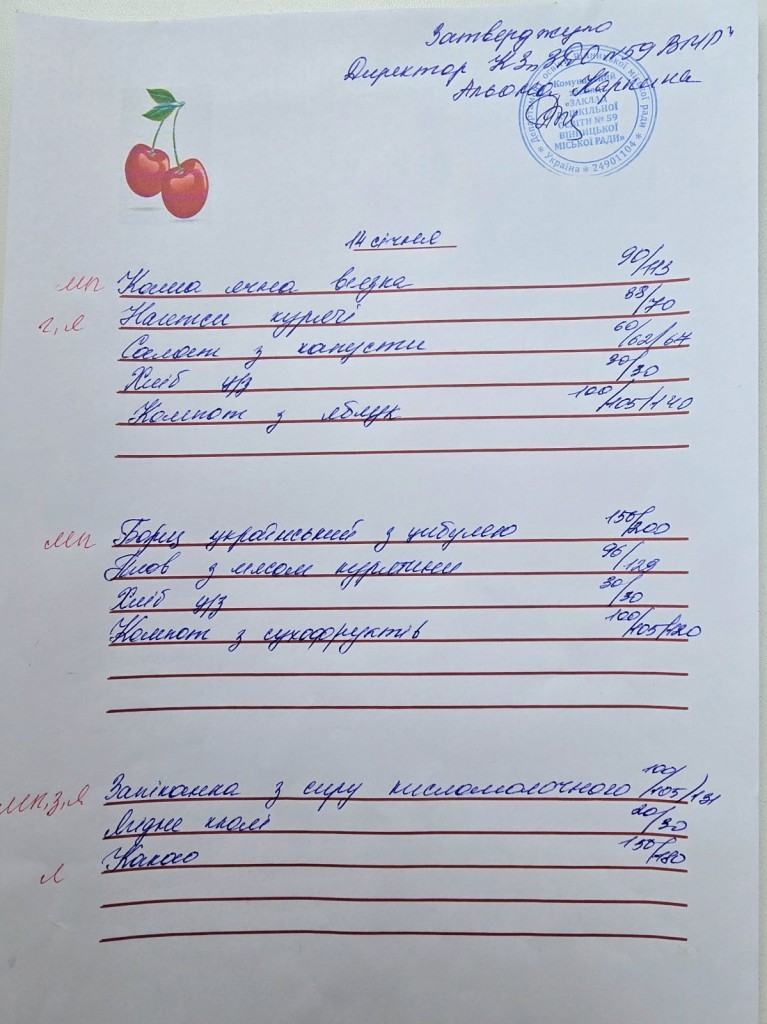 Затверджую
Директор КЗ „ЗДО №59 ВМР"
Альона Карпина
Комунальний
заклад
«ЗАКЛАД
ДОШКІЛЬНОЇ
ОСВІТИ № 59
ВІННИЦЬКОЇ
МІСЬКОЇ РАДИ»
* Україна * 24901104 *
14 січня
мп Каша ячна в'язка 90/113
г, я Нагетси курячі 58/70
Салат з капусти 60/62/67
Хліб ц/з 20/30
Компот з яблук 100/105/140
мп Борщ український з цибулею 150/200
Плов з мясом курятини 96/129
Хліб ц/з 30/30
Компот з сухофруктів 100/105/120
мп, з, я Запіканка з сиру кисломолочного 100/105/131
Ягідне кюлі 20/30
л Какао 150/180